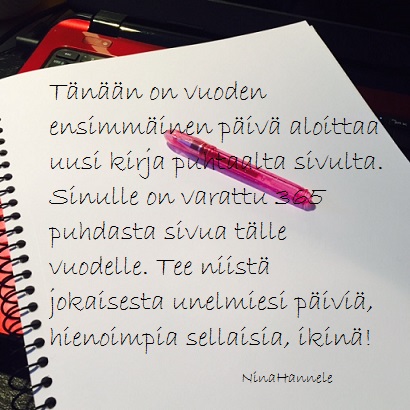 Tänään on vuoden
ensimmäinen päivä aloittaa
uusi kirja puhtaalta sivulta.
Sinulle on varattu 365
puhdasta sivua tälle
vuodelle. Tee niistä
jokaisesta unelmiesi päiviä,
hienoimpia sellaisia, ikinä!
NinaHannele